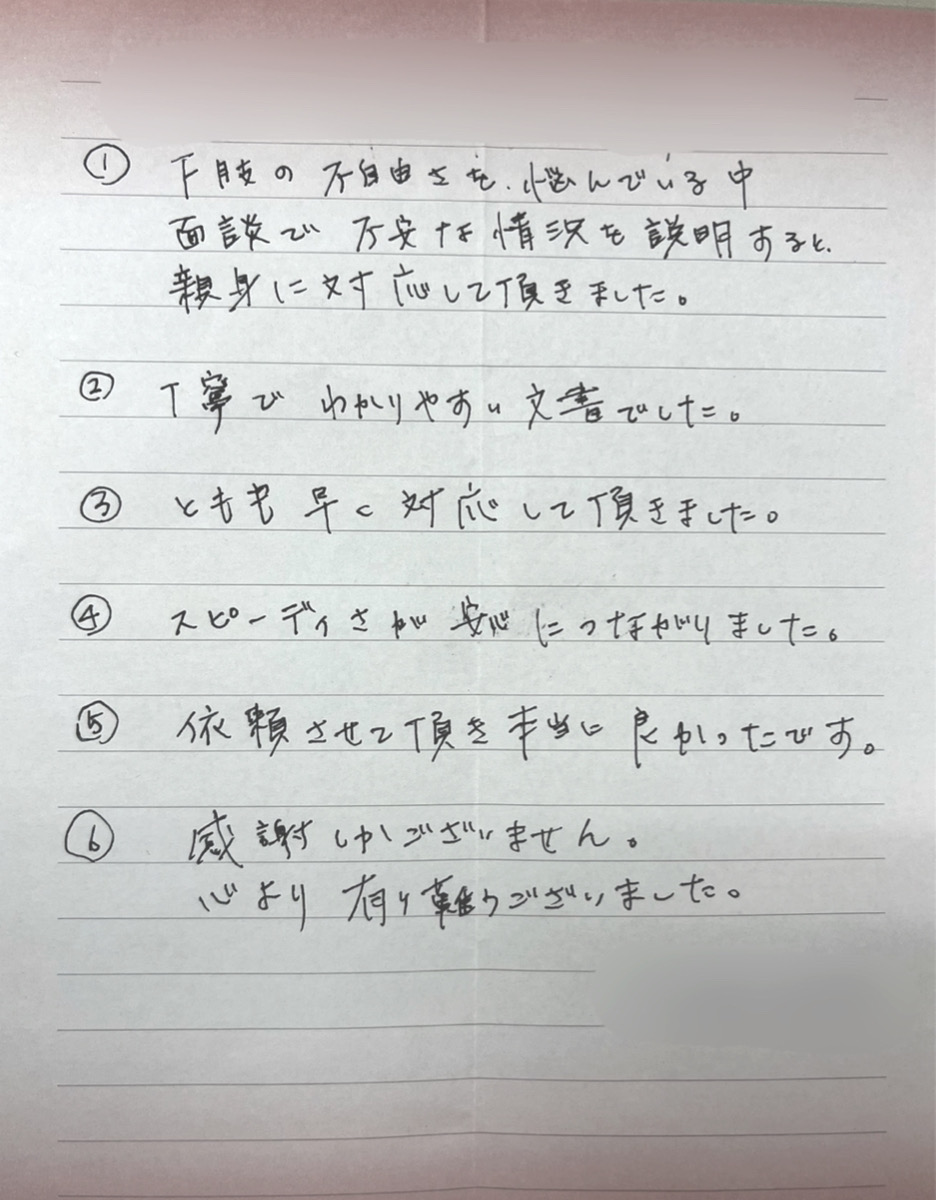 ① 下肢の不自由さを、悩んでいる中
面談で不安な情況を説明すると、
親身に対応して頂きました。
② 丁寧でわかりやすい文書でした。
③ とても早く対応して頂きました。
④ スピーディさが安心につながりました。
⑤ 依頼させて頂き本当に良かったです。
⑥ 感謝しかございません。
心より有り難うございました。